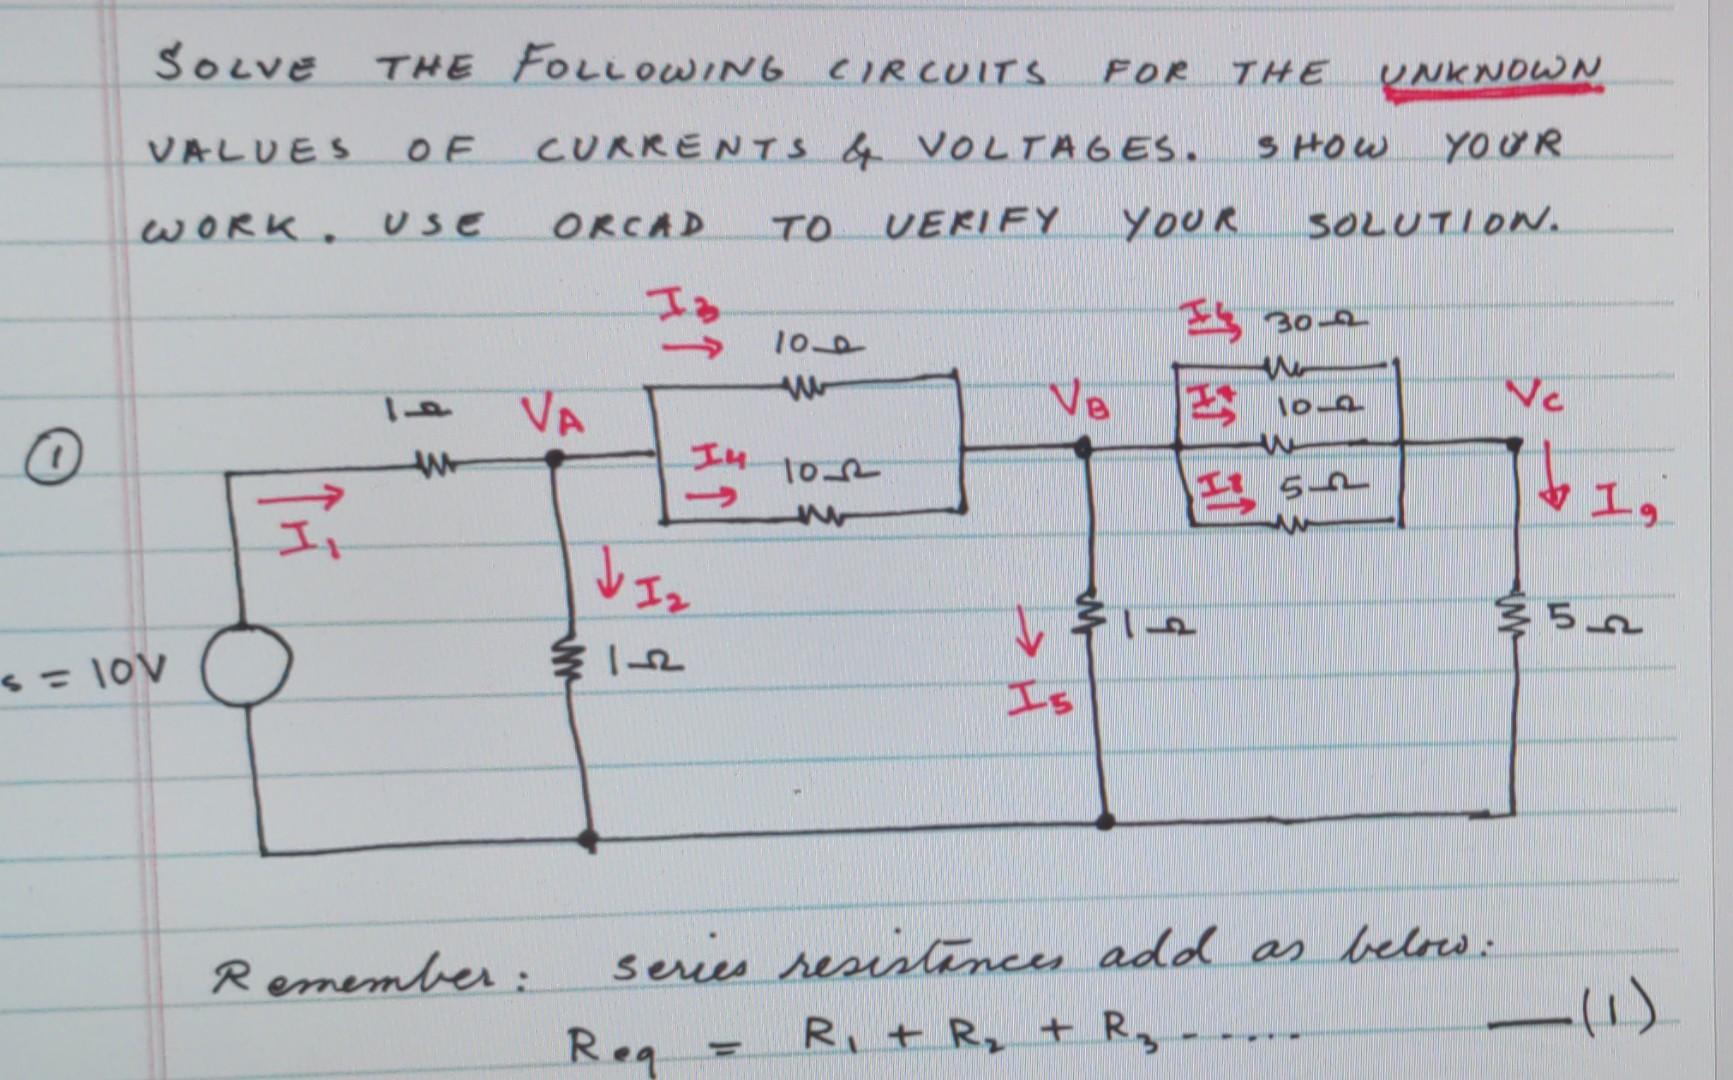 SOLVE THE FOLLOWING CIRCUITS FOR THE UNKNOWN
VALUES OF CURRENTS & VOLTAGES. SHOW YOUR
WORK. USE ORCAD TO VERIFY YOUR SOLUTION.
①
I3
10Ω
1Ω
VA
I4
10Ω
I1
I2
1Ω
s = 10V
VB
30Ω
I7
10Ω
I8
5Ω
VC
I9
I5
1Ω
5Ω
Remember: series resistances add as below:
Req = R1 + R2 + R3 ------ —(1)